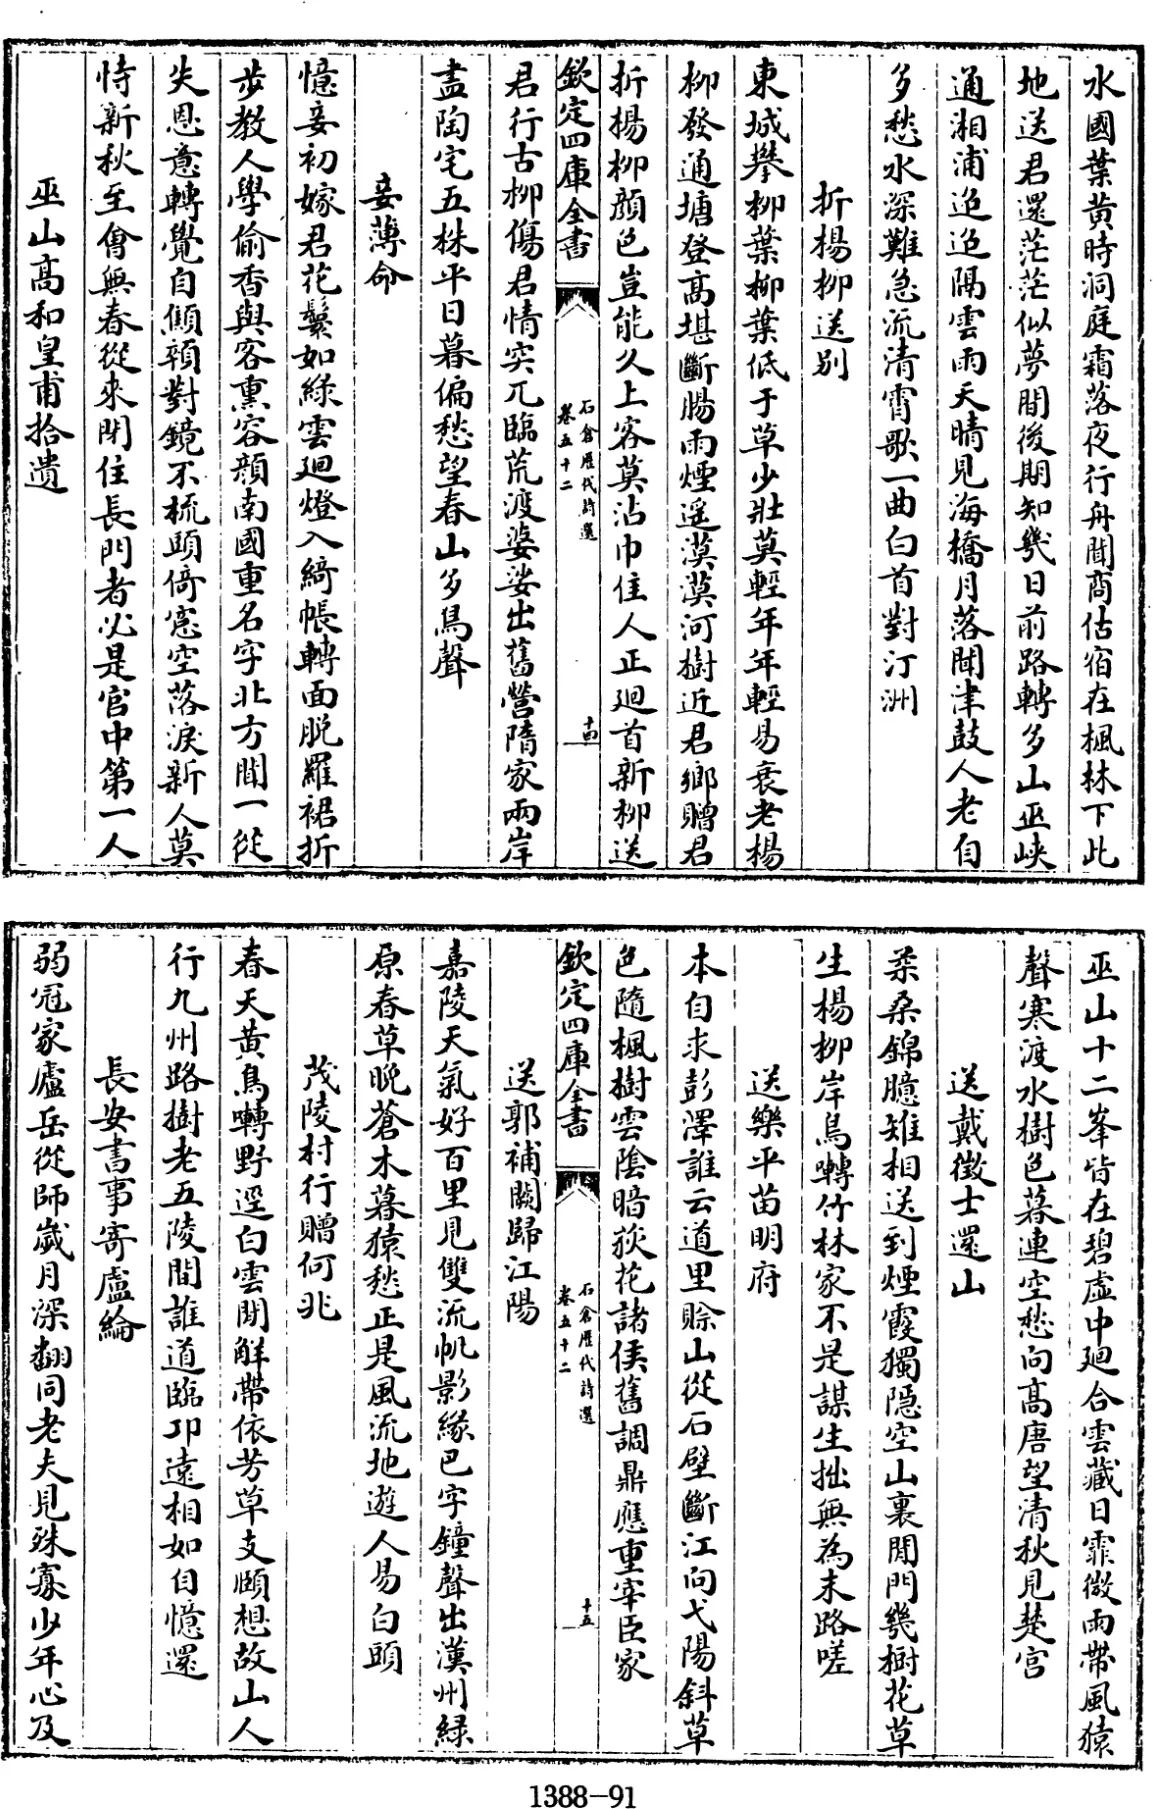 水國葉黄時洞庭霜落夜行舟聞商估宿在楓林下此
地送君還茫茫似夢間後期知幾日前路轉多山巫峽
通湘浦迢迢隔雲雨天晴見海檣月落聞津鼓人老自
多愁水深難急流清霄歌一曲白首對汀洲
折楊柳送别
東城攀柳葉柳葉低于草少壯莫輕年年輕易衰老楊
柳發通塘登髙堪斷腸雨煙遥漠漠河樹近君鄉贈君
折楊柳顔色豈能久上客莫沾巾佳人正廻首新柳送
欽定四庫全書
石倉歷代詩選
卷五十二
十四
君行古柳傷君情突兀臨荒渡婆娑出舊營隋家兩岸
盡陶宅五株平日暮偏愁望春山多鳥聲
妾薄命
憶妾初嫁君花鬟如緑雲廻燈入綺帳轉面脱羅裙折
步教人學偷香與客熏容顔南國重名字北方聞一從
失恩意轉覺自顦顇對鏡不梳頭倚窓空落淚新人莫
恃新秋至㑹無春從來閉在長門者必是宫中第一人
巫山髙和皇甫拾遺
巫山十二峯皆在碧虚中廻合雲藏日霏微雨帶風猿
聲寒渡水樹色暮連空愁向髙唐望清秋見楚宫
送戴徴士還山
柔桑錦臆雉相送到煙霞獨隠空山裏閒門幾樹花草
生楊柳岸鳥囀竹林家不是謀生拙無為末路嗟
送樂平苗明府
本自求彭澤誰云道里賖山從石壁斷江向弋陽斜草
色隨楓樹雲陰暗荻花諸侯舊調鼎應重宰臣家
欽定四庫全書
石倉歷代詩選
卷五十二
十五
送郭補闕歸江陽
嘉陵天氣好百里見雙流帆影緣巴字鐘聲出漢州緑
原春草晩蒼木暮猿愁正是風流地遊人易白頭
茂陵村行贈何兆
春天黄鳥囀野逕白雲閒解帶依芳草支頤想故山人
行九州路樹老五陵間誰道臨卭逺相如自憶還
長安書事寄盧綸
弱冠家廬岳從師嵗月深翻同老夫見殊寡少年心及
1388-91